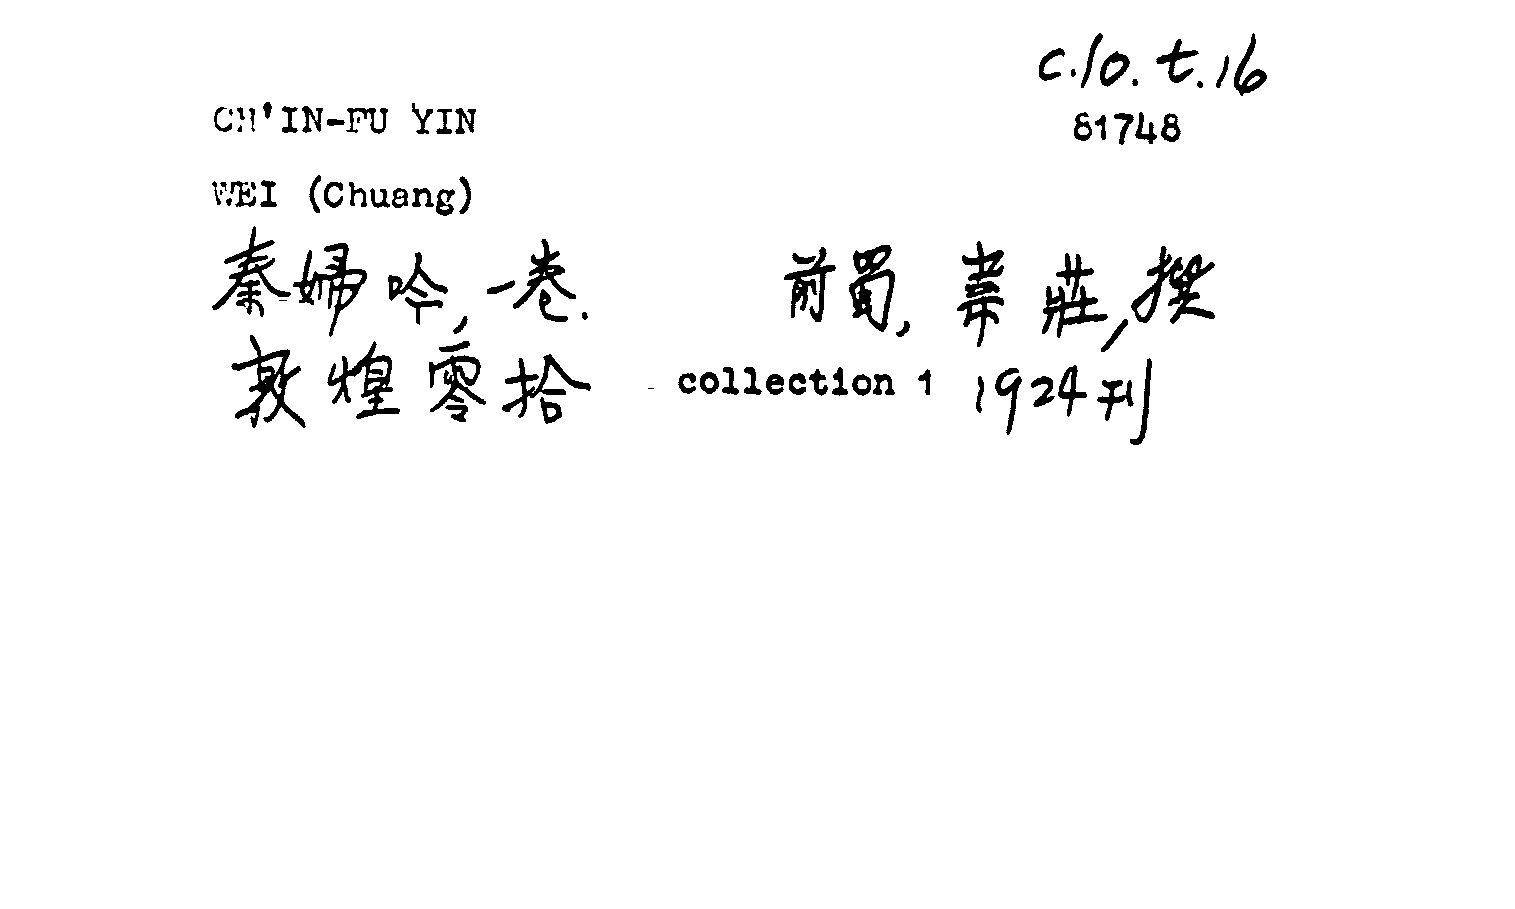 c.10.t.16
CH'IN-FU YIN 81748
WEI (Chuang)
秦婦吟,一卷. 前蜀,韋莊,撰
敦煌零拾 - collection 1 1924刊